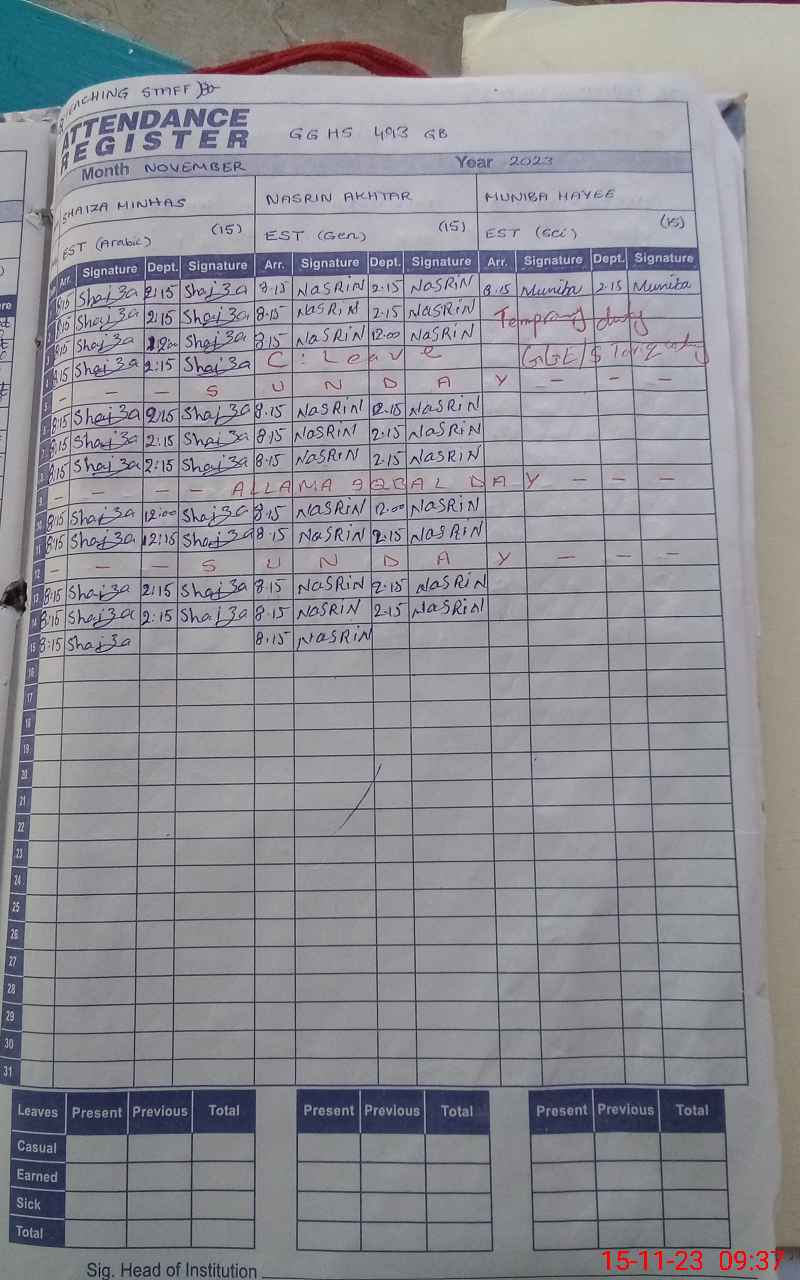 TEACHING STAFF
ATTENDANCE
REGISTER
GGHS 493 GB
Month NOVEMBER Year 2023
SHAIZA MINHAS NASRIN AKHTAR MUNIBA HAYEE
EST (Arabic) (15) EST (Gen) (15) EST (Sci) (15)
Arr. Signature Dept. Signature Arr. Signature Dept. Signature Arr. Signature Dept. Signature
8:15 Shaj3a 2:15 Shaj3a 8.15 NaSRiN 2.15 NaSRiN 8.15 Muniba 2.15 Muniba
8:15 Shaj3a 2:15 Shaj3a 8.15 NaSRiN 2.15 NaSRiN duty
8:15 Shaj3a Shaj3a 8.15 NaSRiN 12.00 NaSRiN
4 8:15 Shaj3a 2:15 Shaj3a C. Leave
5 - - - S U N D A Y - - -
6 8:15 Shaj3a 2:15 Shaj3a 8.15 NaSRiN 2.15 NaSRiN
7 8:15 Shaj3a 2:15 Shaj3a 8.15 NaSRiN 2.15 NaSRiN
8 8:15 Shaj3a 2:15 Shaj3a 8.15 NaSRiN 2.15 NaSRiN
9 - - - - ALLAMA IQBAL DAY - - -
10 8:15 Shaj3a 12:00 Shaj3a 8.15 NaSRiN 12.00 NaSRiN
11 8:15 Shaj3a 2:15 Shaj3a 8.15 NaSRiN 2.15 NaSRiN
12 - - - S U N D A Y - - -
13 8:15 Shaj3a 2:15 Shaj3a 8.15 NaSRiN 2.15 NaSRiN
14 8:15 Shaj3a 2:15 Shaj3a 8.15 NaSRiN 2.15 NaSRiN
15 8:15 Shaj3a 8.15 NaSRiN
16
17
18
19
20
21
22
23
24
25
26
27
28
29
30
31
Leaves Present Previous Total Present Previous Total Present Previous Total
Casual
Earned
Sick
Total
Sig. Head of Institution
15-11-23 09:37